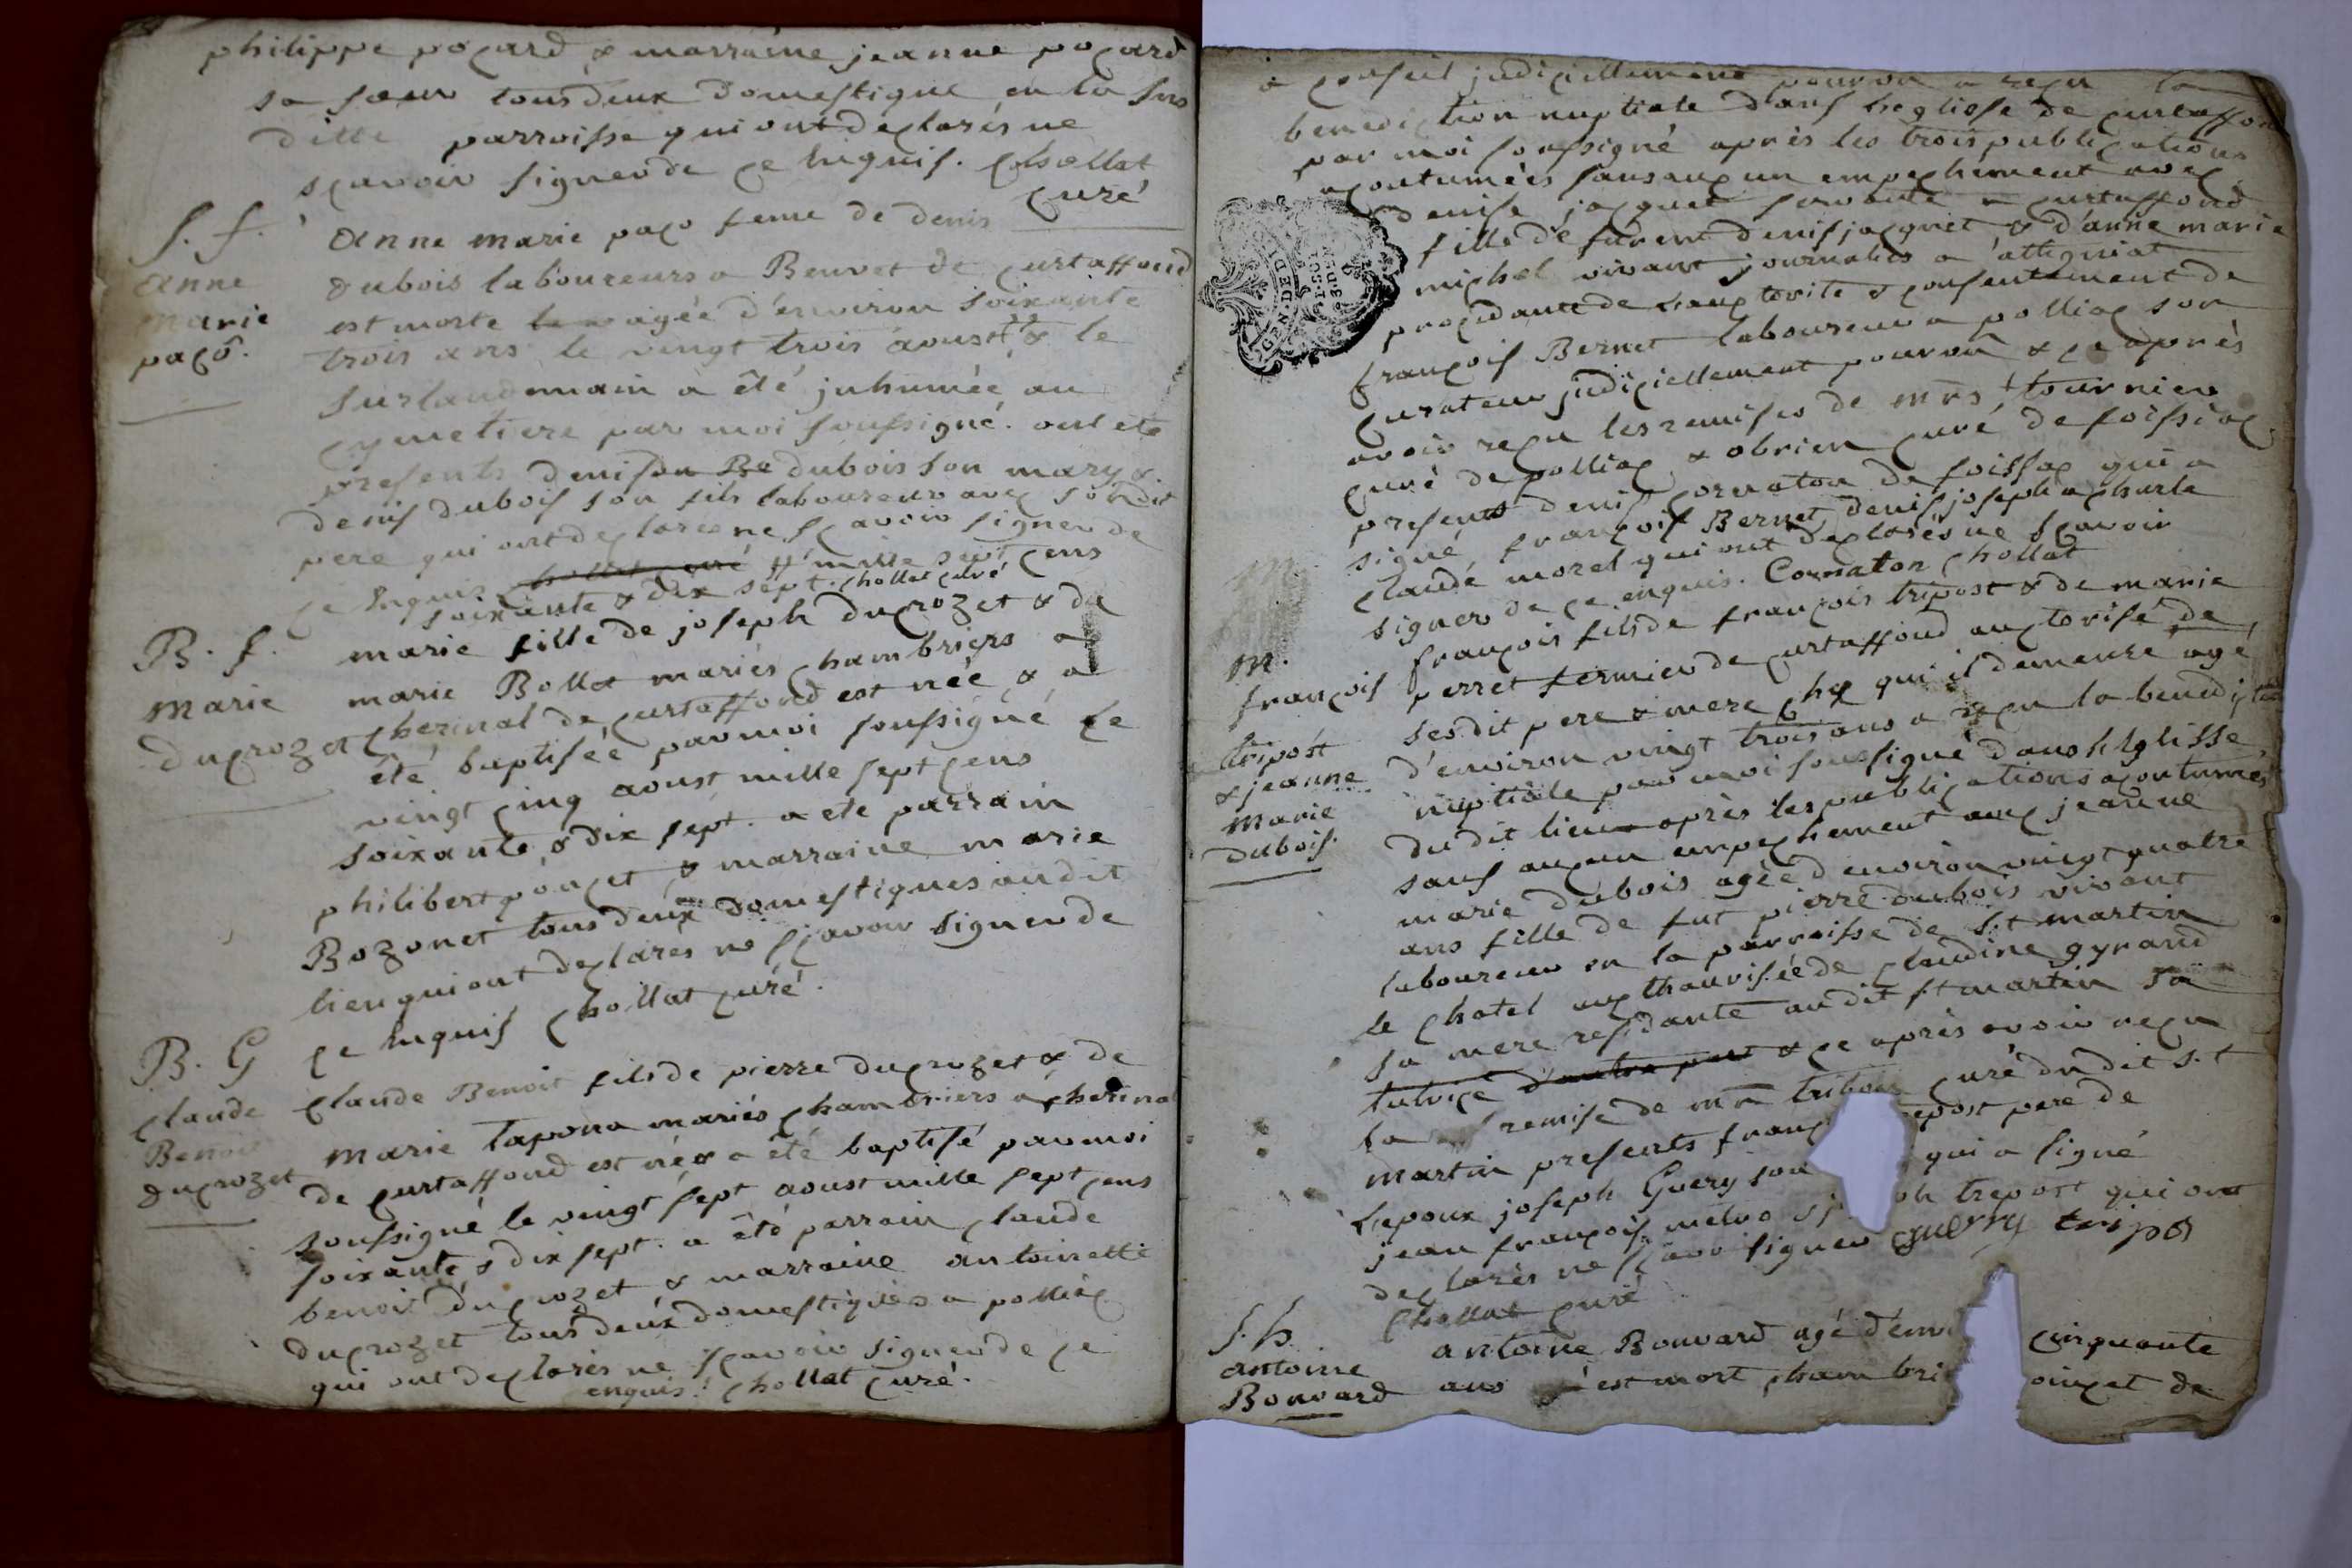 philippe poçard & marraine jeanne poçard
sa sœur tous deux domestique en la sus
ditte parroisse qui ont declarés ne
sçavoir signer de ce enquis. Chollat
curé
S. f.
anne
marie
paço.
anne marie paço feme de denis
dubois laboureurs a Beuvet de curtaffond
est morte agée d'environ soixante
trois ans le vingt trois aoust & le
surlandemain a été inhumée au
cymetiere par moi soussigné. ont été
presents denis dubois son mary &
denis dubois son fils laboureur avec sondit
pere qui ont declares ne sçavoir signer de
ce enquis chollat curé mille sept cens
soixante & dix sept. chollat curé
B. f.
marie
ducrozet
marie fille de joseph ducrozet & de
marie Bollet mariés chambriers a
cherinal de curtaffond est née & a
été baptisée par moi soussigné le
vingt cinq aoust mille sept cens
soixante & dix sept. a ete parrain
philibert pouçet & marraine marie
Bozonet tous deux domestiques audit
lieu qui ont declares ne sçavoir signer de
ce enquis chollat curé.
B. G
claude
Benoit
ducrozet
claude Benoit fils de pierre ducrozet & de
marie tapona mariés chambriers a cherinal
de curtaffond est né & a été baptisé par moi
soussigné le vingt sept aoust mille sept cens
soixante & dix sept. a été parrain claude
benoit ducrozet & marraine antoinette
ducrozet tous deux domestiques a polliac
qui ont declarés ne sçavoir signer de ce
enquis. chollat curé.
a conseil judiciellement pourvu a reçu la
benediction nuptiale dans l'eglisse de curtaffond
par moi soussigné après les trois publications
acoutumées sans aucun empechement avec
denise jacquet servante a curtaffond
fille de furent denis jacquet & d'anne marie
michel vivant journaliers a attigniat
procedante de l'auctorite & consentement de
françois Bernet laboureur a polliac son
curateur judiciellement pourvu & ce après
avoir reçu les remises de mrs tournier
curé de polliac & obrien curé de foissiac
presents denis cornaton de foissac qui a
signé, françois Bernet, denis joseph
claude morel qui ont declarés ne sçavoir
signer de ce enquis. Cornaton Chollat
M.
françois
tripost
& jeanne
marie
dubois.
françois fils de françois tripost & de marie
perret fermier de curtaffond auctorisé de
sesdit pere & mere chez qui il demeure agé
d'environ vingt trois ans a reçu la benediction
nuptiale par moi soussigné dans l'eglisse
dudit lieu après les publications acoutumés
sans aucun empechement avec jeanne
marie dubois agée d'environ vingt quatre
ans fille de fut pierre dubois vivant
laboureur en la parroisse de st martin
le chatel aucthaurisée de claudine gyraud
sa mere residante audit st martin sa
tutrice d'autre part & ce après avoir reçu
la remise de mr tribou curé dudit s.t
martin presents franç epost pere de
l'epoux joseph Guery son qui a signé
jean françois & j ph trepost qui ont
declarés ne sçavoir signer guerry tripo
Chollat curé
S. h.
antoine
Bouvard
antoine Bouvard agé d'env cinquante
ans est mort chambri ouçet de